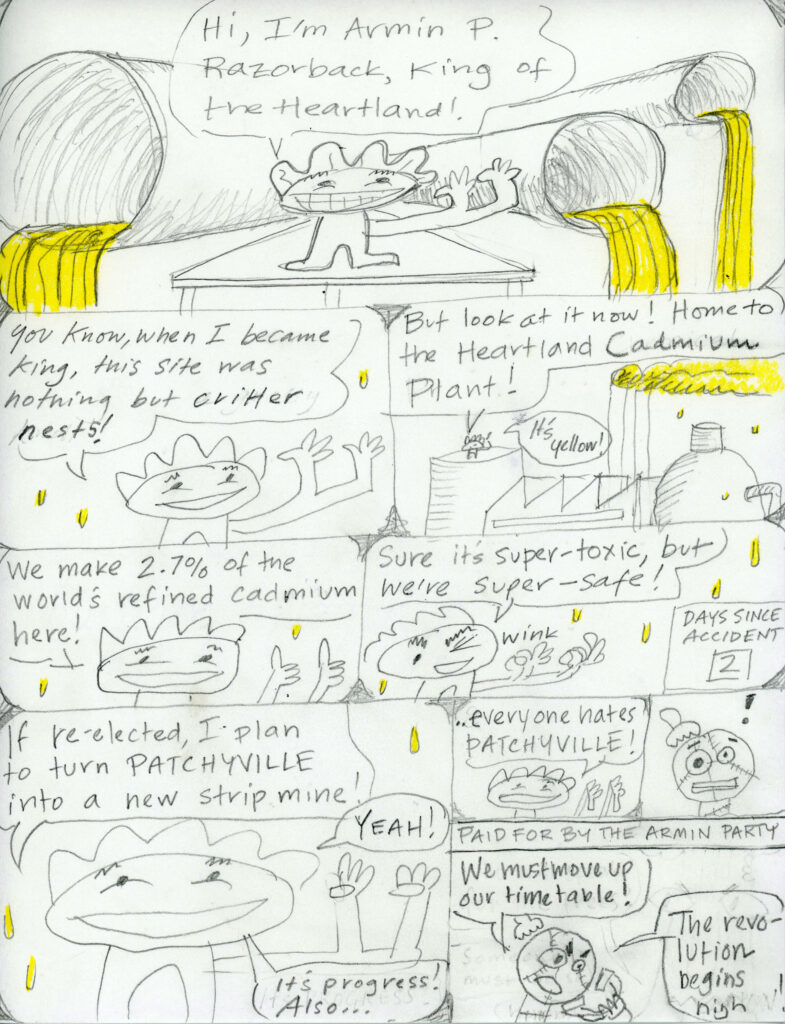 Hi, I'm Armin P.
Razorback, King of
the Heartland!
You know, when I became
king, this site was
nothing but critter
nests!
But look at it now! Home to
the Heartland Cadmium
Plant!
It's
yellow!
We make 2.7% of the
world's refined cadmium
here!
Sure it's super-toxic, but
we're super-safe!
wink
DAYS SINCE
ACCIDENT
2
If re-elected, I plan
to turn PATCHYVILLE
into a new strip mine!
YEAH!
It's progress!
Also...
..everyone hates
PATCHYVILLE!
!
PAID FOR BY THE ARMIN PARTY
We must move up
our timetable!
The revo-
lution
begins
nigh!